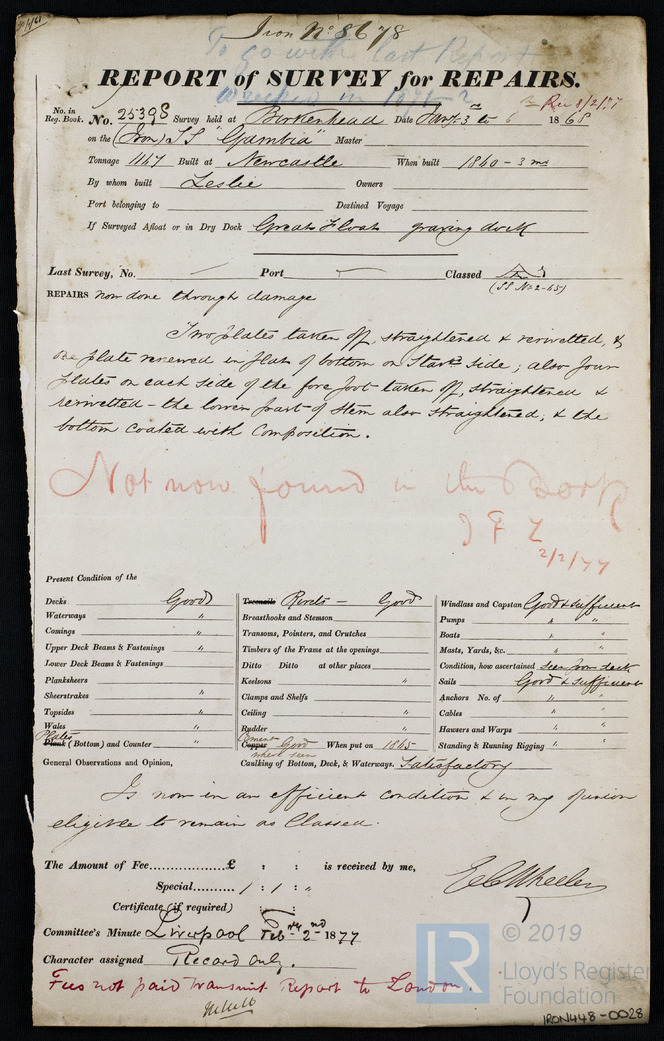 Iron No. 8678
To go with last Report
Wrecked in 1871-2
REPORT of SURVEY for REPAIRS.
Rec 8/2/77
No. in Reg. Book. No. 25398 Survey held at Birkenhead Date Jany. 3 to 6th 1868
on the (Iron) SS "Gambia" Master
Tonnage 1147 Built at Newcastle When built 1860 - 3 mo
By whom built Leslie Owners
Port belonging to Destined Voyage
If Surveyed Afloat or in Dry Dock Great Float graving dock
Last Survey, No. Port Classed
(SS No 2-65)
REPAIRS now done through damage
Two plates taken off, straightened & rerivetted, &
one plate renewed in flat of bottom on Starbd side; also four
plates on each side of the fore foot taken off, straightened &
rerivetted - the lower part of Stem also straightened, & the
bottom coated with Composition.
Not now found in the Book
2/2/77
Present Condition of the
Decks Good
Waterways "
Comings "
Upper Deck Beams & Fastenings "
Lower Deck Beams & Fastenings
Planksheers
Sheerstrakes "
Topsides "
Wales "
Plates
Plank (Bottom) and Counter "
General Observations and Opinion,
Treenails Rivets - Good
Breasthooks and Stemson
Transoms, Pointers, and Crutches
Timbers of the Frame at the openings
Ditto Ditto at other places
Keelsons "
Clamps and Shelfs
Ceiling "
Rudder "
Cement
Copper Good When put on 1865
where seen
Caulking of Bottom, Deck, & Waterways. Satisfactory
Windlass and Capstan Good & sufficient
Pumps " "
Boats " "
Masts, Yards, &c. " "
Condition, how ascertained seen from deck
Sails Good & sufficient
Anchors No. of " "
Cables " "
Hawsers and Warps " "
Standing & Running Rigging " "
Is now in an efficient condition & in my opinion
eligible to remain as Classed.
The Amount of Fee..................£ : : is received by me,
Special.......... 1 : 1 : "
Certificate (if required) : :
E C Wheeler
Committee's Minute Liverpool Feby 2nd 1877
Character assigned Record only.
Fees not paid transmit Report to London.
LR
© 2019
Lloyd's Register
Foundation
IRON448-0028